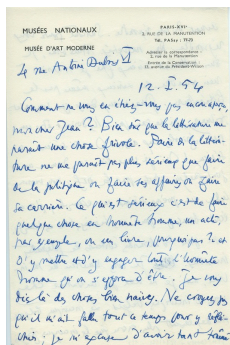 MUSÉES NATIONAUX
MUSÉE D'ART MODERNE
PARIS-XVIe
2, RUE DE LA MANUTENTION
Tél. PASsy : 75-23
Adresser la correspondance :
2, rue de la Manutention
Entrée de la Conservation :
13, avenue du Président-Wilson
4 rue Antoine Dubois VI
12.I.54
Comment ne vous en
mon cher Jean ? Bien sûr que la littérature me
paraît une chose frivole. Faire de la littéra-
ture ne me paraît pas plus sérieux que faire
de la politique ou faire ses affaires ou faire
sa carrière. Ce qui est sérieux c'est de faire
quelque chose en honnête homme, un acte,
par exemple, ou un livre, pourquoi pas ? et
d'y mettre et d'y engager tout l'honnête
homme qu'on s'efforce d'être. Je vous
dis là des choses bien naïves. Ne croyez pas
qu'il m'ait fallu tout ce temps pour y réflé-
chir ; je m'excuse d'avoir tant